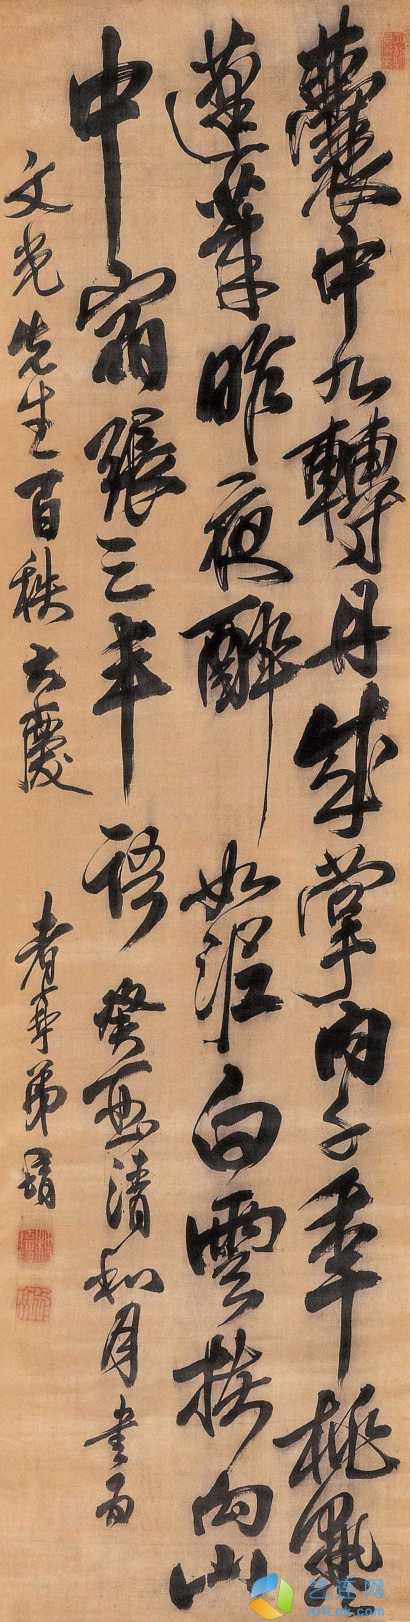 囊中九轉丹成掌內千年桃熟
蓬萊昨夜醉如泥白雲扶向山
中宿張三丰語癸酉清和月書為
文光先生百秩大慶
年弟
艺连网